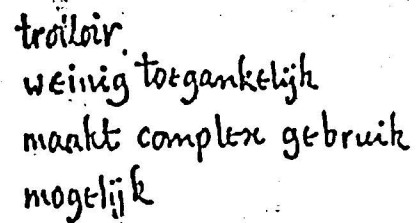 troiloir
weinig toegankelijk
maakt complex gebruik
mogelijk